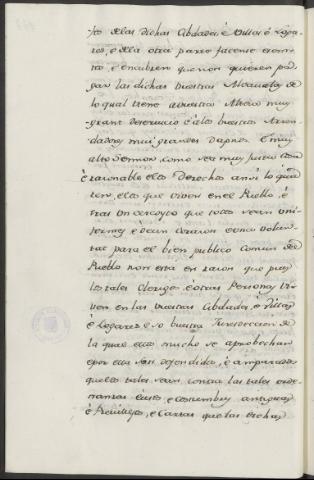 tro delas dichas Cibdades é Villas é Loga-
res, é dela otra parte facense esemp-
tos, é encubren que non quieren pa-
gar las dichas vuestras Alcavalas de
lo qual viene avuestra Alteza muy
grant deservicio é alos vuestros Arren-
dadores mui grandes Dapnos. E muy
alto Sennor como sea muy justa cosa
é razonable alos Derechos ansi lo quie-
ren, alos que viven en el Pueblo, é
fras un concejo que todos sean uni-
formes é de un corazon é una volun-
tat para el bien publico Comun del
Pueblo non esta en razon que pues
los tales Clerigos é otras Personas vi-
ven en las vuestras Cibdades é Villas
é Logares é so vuestra Jurisdiccion de
la qual ellos mucho se aprobechan
é por ella son defendidos, é amparados
quelos tales sean contra las tales orde-
nanzas Leies, e costumbres antiguas
é Privillejos, e Cartas que las dichas